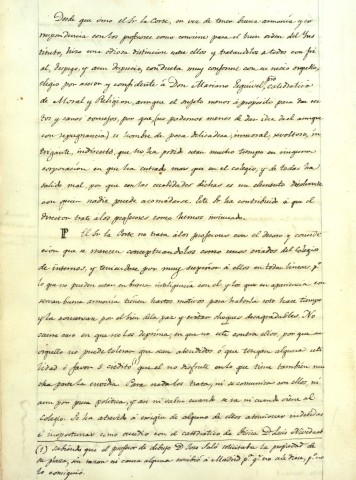 Desde que vino el Sr. la Corte, en vez de tener buena armonía y co-
rrespondencia con los profesores como conviene para el buen orden del Ins-
tituto, hizo una odiosa distinción entre ellos y tratandolos a todos con fri
al, despego, y aun desprecio, conducta muy conforme con su necio orgullo,
elegio por asesor y confidente á Don Mariano Esquivel, catedratico
de Moral y Religion, aunque el sugeto menos á proposito para dar rec-
tos y sanos consejos, por que (us podemos menos de dar idea de el aunque
con repugnancia) es hombre de poca delicadeza, inmoral, revoltoso, in-
trigante, indiscreto, que no ha podido estar mucho tiempo en ninguna
corporacion, en que ha entrado mas que en el colegio, y de todas ha
salido mal, por que con las cualidades dichas es un elemento disolvente
con quien nadie puede acomodarse. Este Sr. ha contribuido á que el
director trate á los profesores como hemos insinuado.
El Sr. la Corte no trata á los profesores con el decoro y considera-
cion que se merecen conceptuandolos como unos criados del Colegio
de internos, y teniendose por muy superior á ellos en todas lineas; pr.
lo que no pueden estar en buena inteligencia con el, y los que en apariencia con-
servan buena armonia tienen hartos motivos para haberla roto hace tiempo
y la conservan por el bien de la paz y evitar choques desagradables. No
ocurre caso en que no los deprima, en que no esté contra ellos, por que su
orgullo no puede tolerar que sean atendidos ó que tengan alguna uti-
lidad ó favor ó credito que el no disfrute en lo que tiene tambien mu-
cha parte la envidia. Para nada los trata, ni se comunica con ellos ni
aun por pura politica, y asi ni saluda cuando se va ni cuando viene al
Colegio. Se ha atrevido á exigir de alguno de ellos atenciones indebidas
é inoportunas: uno sucedio con el catedratico de Fisica D. Luis
(1) Sabiendo que el profesor de dibujo D. Jose Saló solicitaba la propiedad de
su plaza, sin razon ni causa alguna escribió á Madrid pa. qe. no se la diese, pº no
lo consiguió.